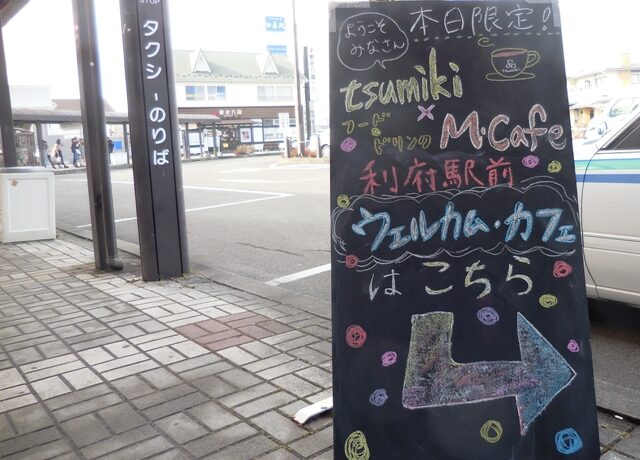 STOP
タクシーのりば
本日限定!
ようこそ
みなさん
tsumiki
×
フード・
ドリンク
M・Cafe
利府駅前
ウェルカム・カフェ
はこちら